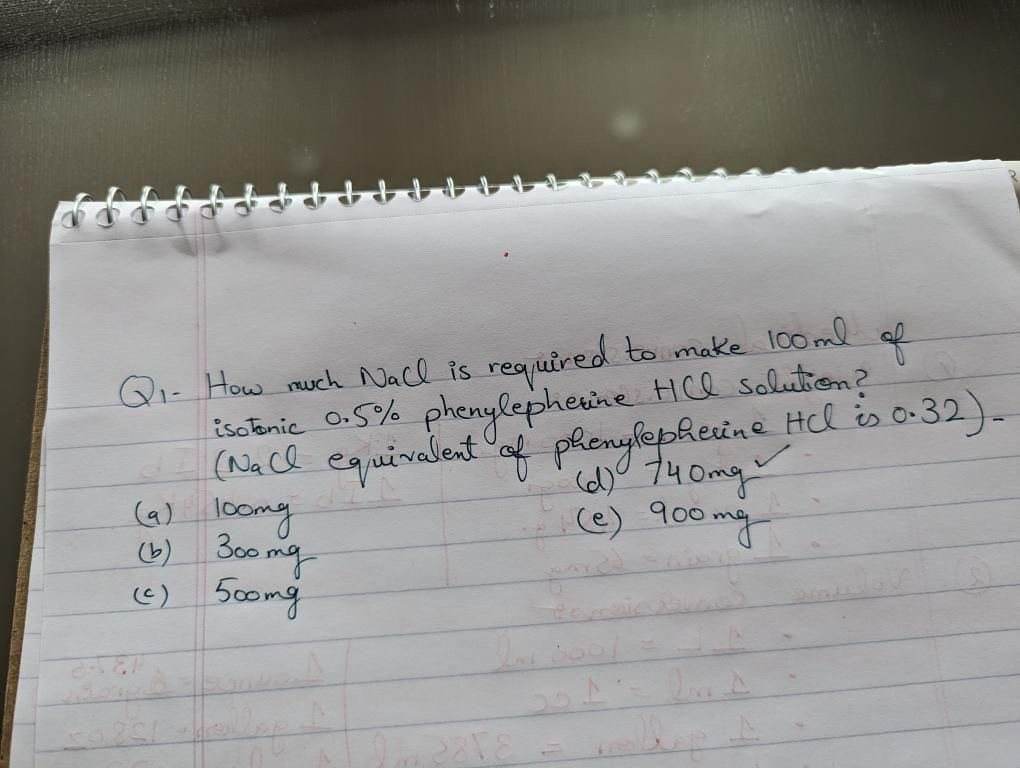 Q1- How much NaCl is required to make 100ml of
isotonic 0.5% phenylepherine HCl solution?
(NaCl equivalent of phenylepherine HCl is 0.32)-
(a) 100mg
(b) 300mg
(c) 500mg
(d) 740mg ✓
(e) 900mg